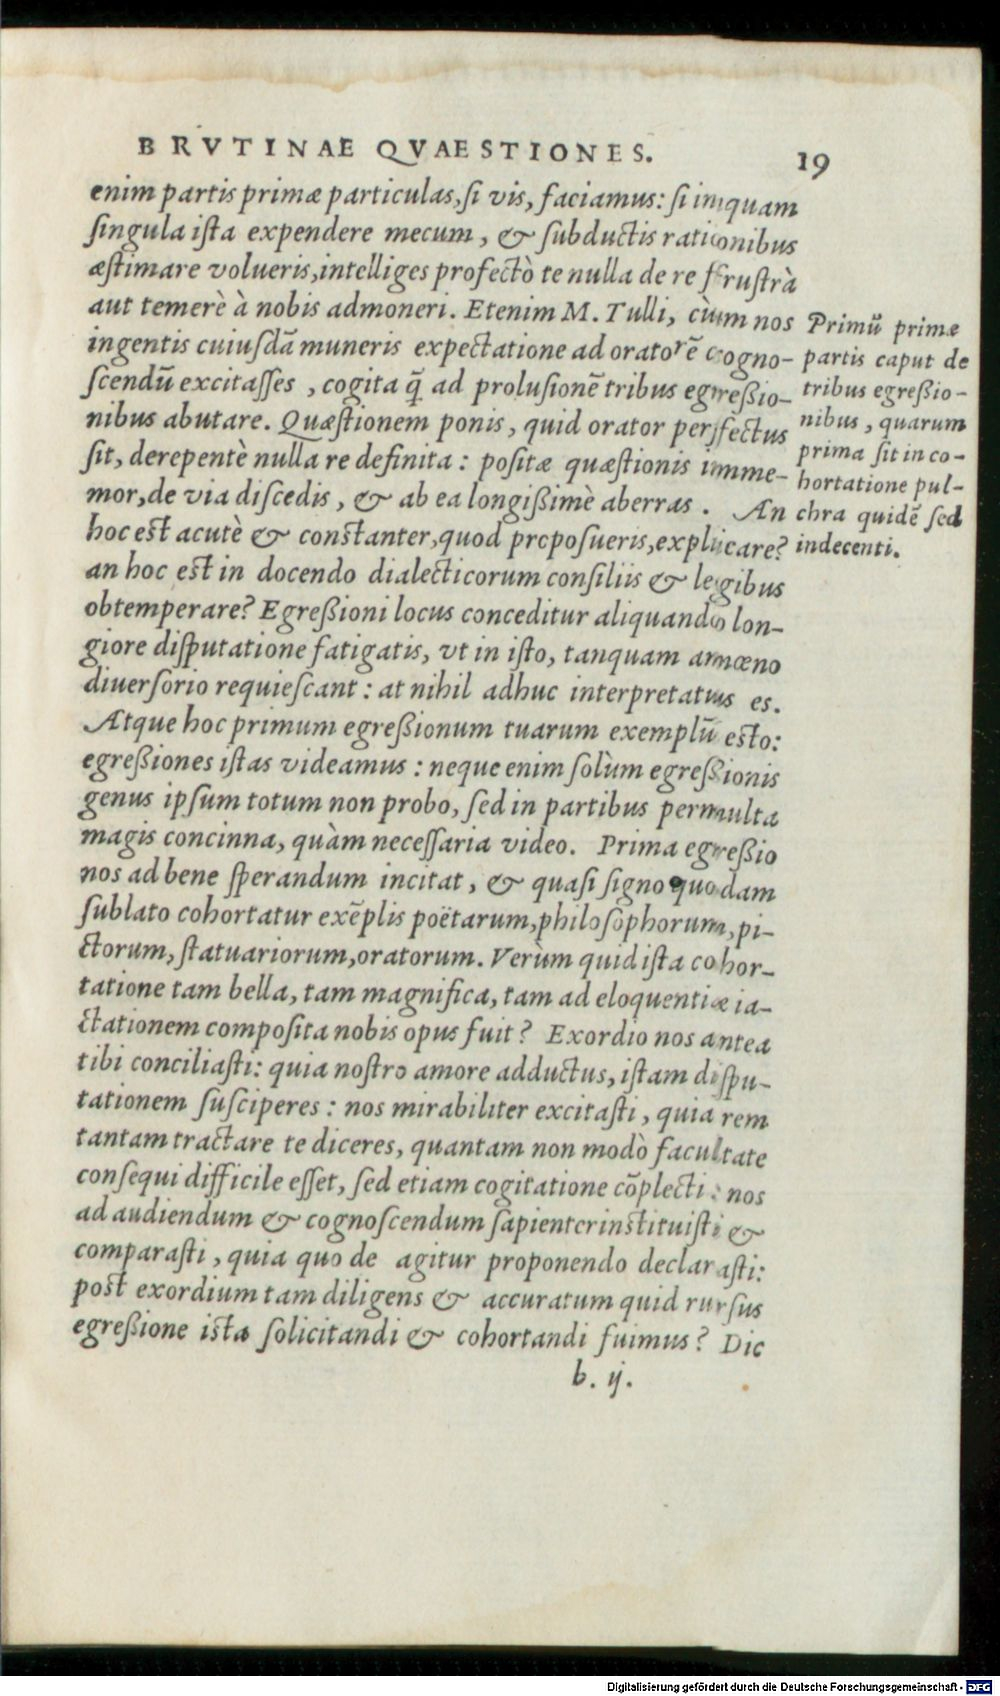 BRVTINAE QVAESTIONES. 19
enim partis primæ particulas, ſi vis, faciamus: ſi inquam
ſingula iſta expendere mecum, & ſubductis rationibus
æſtimare volueris, intelliges profectò te nulla de re fruſtrà
aut temerè à nobis admoneri. Etenim M. Tulli, cùm nos
ingentis cuiuſdā muneris expectatione ad oratorē cogno-
ſcendū excitaſſes, cogita q̄ ad proluſionē tribus egreßio-
nibus abutare. Quæſtionem ponis, quid orator perfectus
ſit, derepentè nulla re definita: poſitæ quæſtionis imme-
mor, de via diſcedis, & ab ea longißimè aberras. An
hoc est acutè & constanter, quod propoſueris, explicare?
an hoc est in docendo dialecticorum conſiliis & legibus
obtemperare? Egreßioni locus conceditur aliquando lon-
giore diſputatione fatigatis, vt in iſto, tanquam amœno
diuerſorio requieſcant: at nihil adhuc interpretatus es.
Atque hoc primum egreßionum tuarum exemplū esto:
egreßiones iſtas videamus: neque enim ſolùm egreßionis
genus ipſum totum non probo, ſed in partibus permulta
magis concinna, quàm neceſſaria video. Prima egreßio
nos ad bene ſperandum incitat, & quaſi ſigno quodam
ſublato cohortatur exēplis poëtarum, philoſophorum, pi-
ctorum, ſtatuariorum, oratorum. Verùm quid iſta cohor-
tatione tam bella, tam magnifica, tam ad eloquentiæ ia-
ctationem compoſita nobis opus fuit? Exordio nos antea
tibi conciliaſti: quia noſtro amore adductus, iſtam diſpu-
tationem ſuſciperes: nos mirabiliter excitaſti, quia rem
tantam tractare te diceres, quantam non modò facultate
conſequi difficile eſſet, ſed etiam cogitatione cōplecti: nos
ad audiendum & cognoſcendum ſapienter inſtituiſti &
comparaſti, quia quo de agitur proponendo declaraſti:
post exordium tam diligens & accuratum quid rurſus
egreßione ista ſolicitandi & cohortandi fuimus? Dic
b. ij.
Primū primæ
partis caput de
tribus egreßio-
nibus, quarum
prima ſit in co-
hortatione pul-
chra quidē ſed
indecenti.
Digitalisierung gefördert durch die Deutsche Forschungsgemeinschaft - DFG